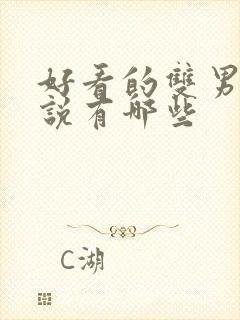 好看的雙男
說有哪些
C湖